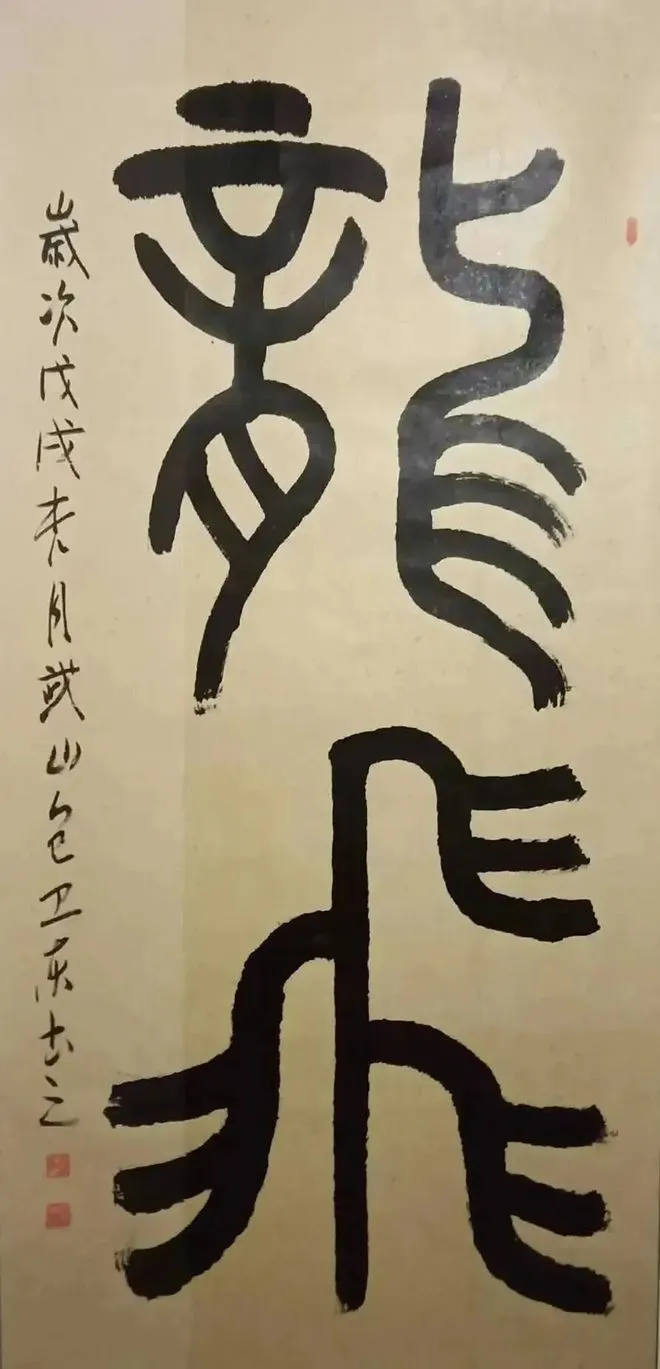 龍飛
歲次戊戌春月黃山包卫东书之